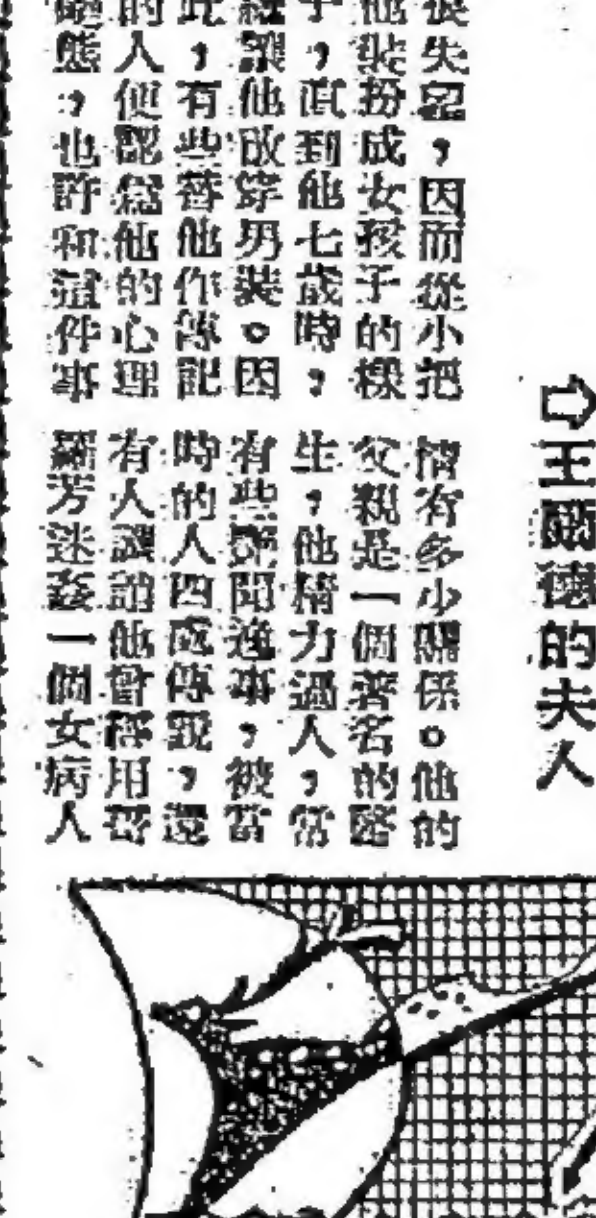 ⇨王爾德的夫人
很失望，因而從小把
他裝扮成女孩子的樣
子，直到他七歲時，
纔讓他改穿男裝。因
此，有些替他作傳記
的人便認爲他的心理
變態，也許和這件事
情有多少關係。他的
父親是一個著名的醫
生，他精力過人，常
有些艷聞逸事，被當
時的人四處傳說，還
有人他曾經用哥
羅芳迷姦一個女病人